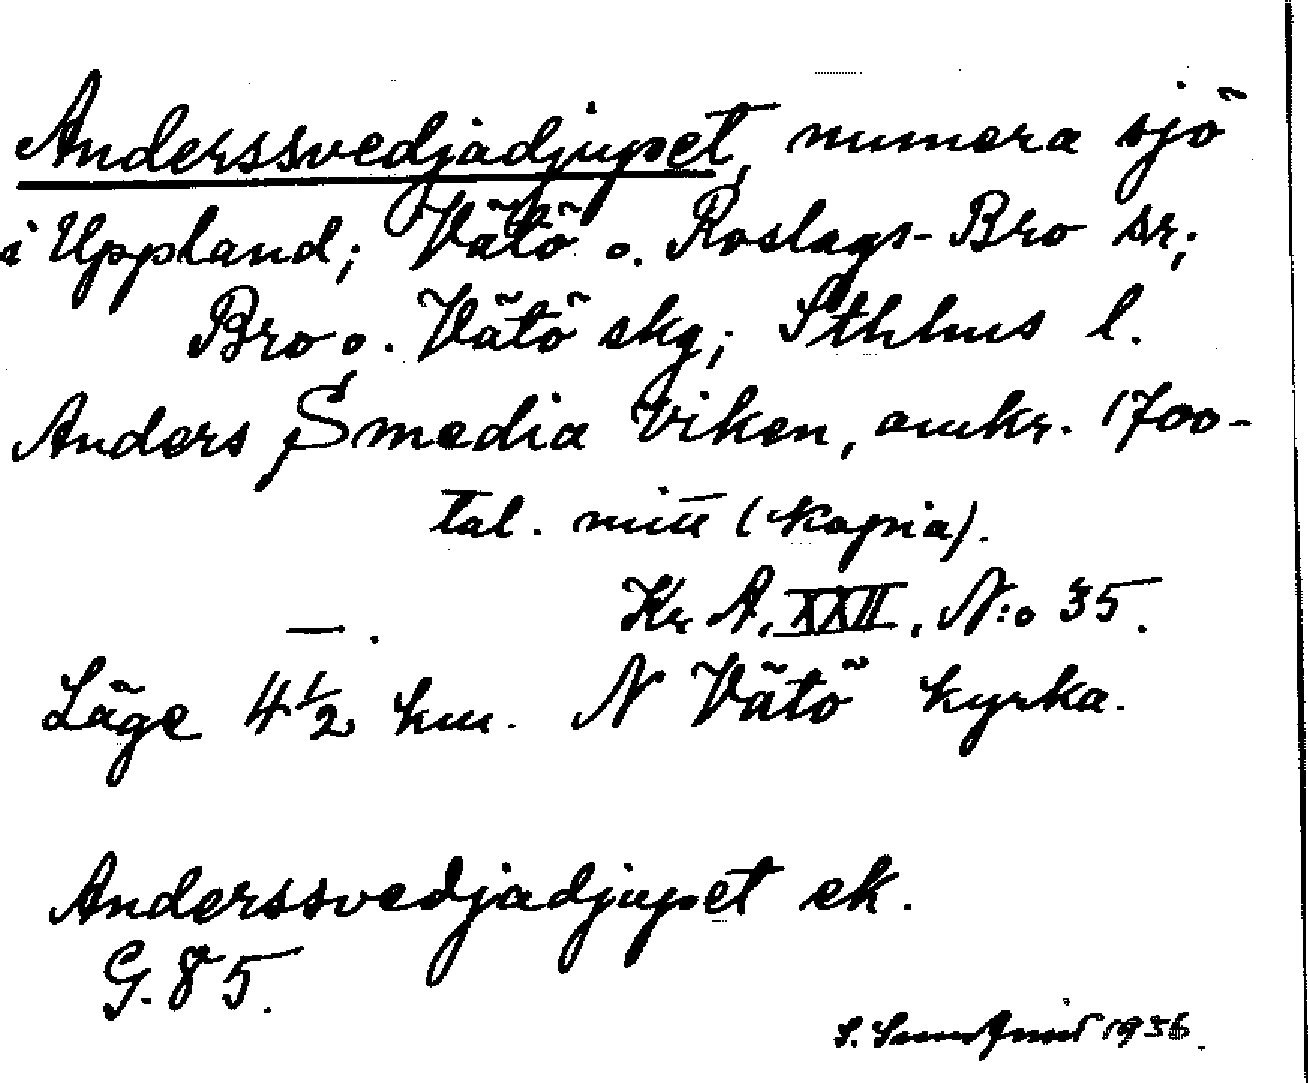 Anderssvedjadjupet, numera sjö
i Uppland; Vätö o. Roslags-Bro sr;
Bro o. Vätö skg; Sthlms l.
Anders Smedia Viken, omkr. 1700-
tal. mitt (kopia).
Kr A, XXII, N:o 35.
— .
Läge 4 1/2 km. N Vätö kyrka.
Anderssvedjadjupet ek.
G. 85.
S. 1936.